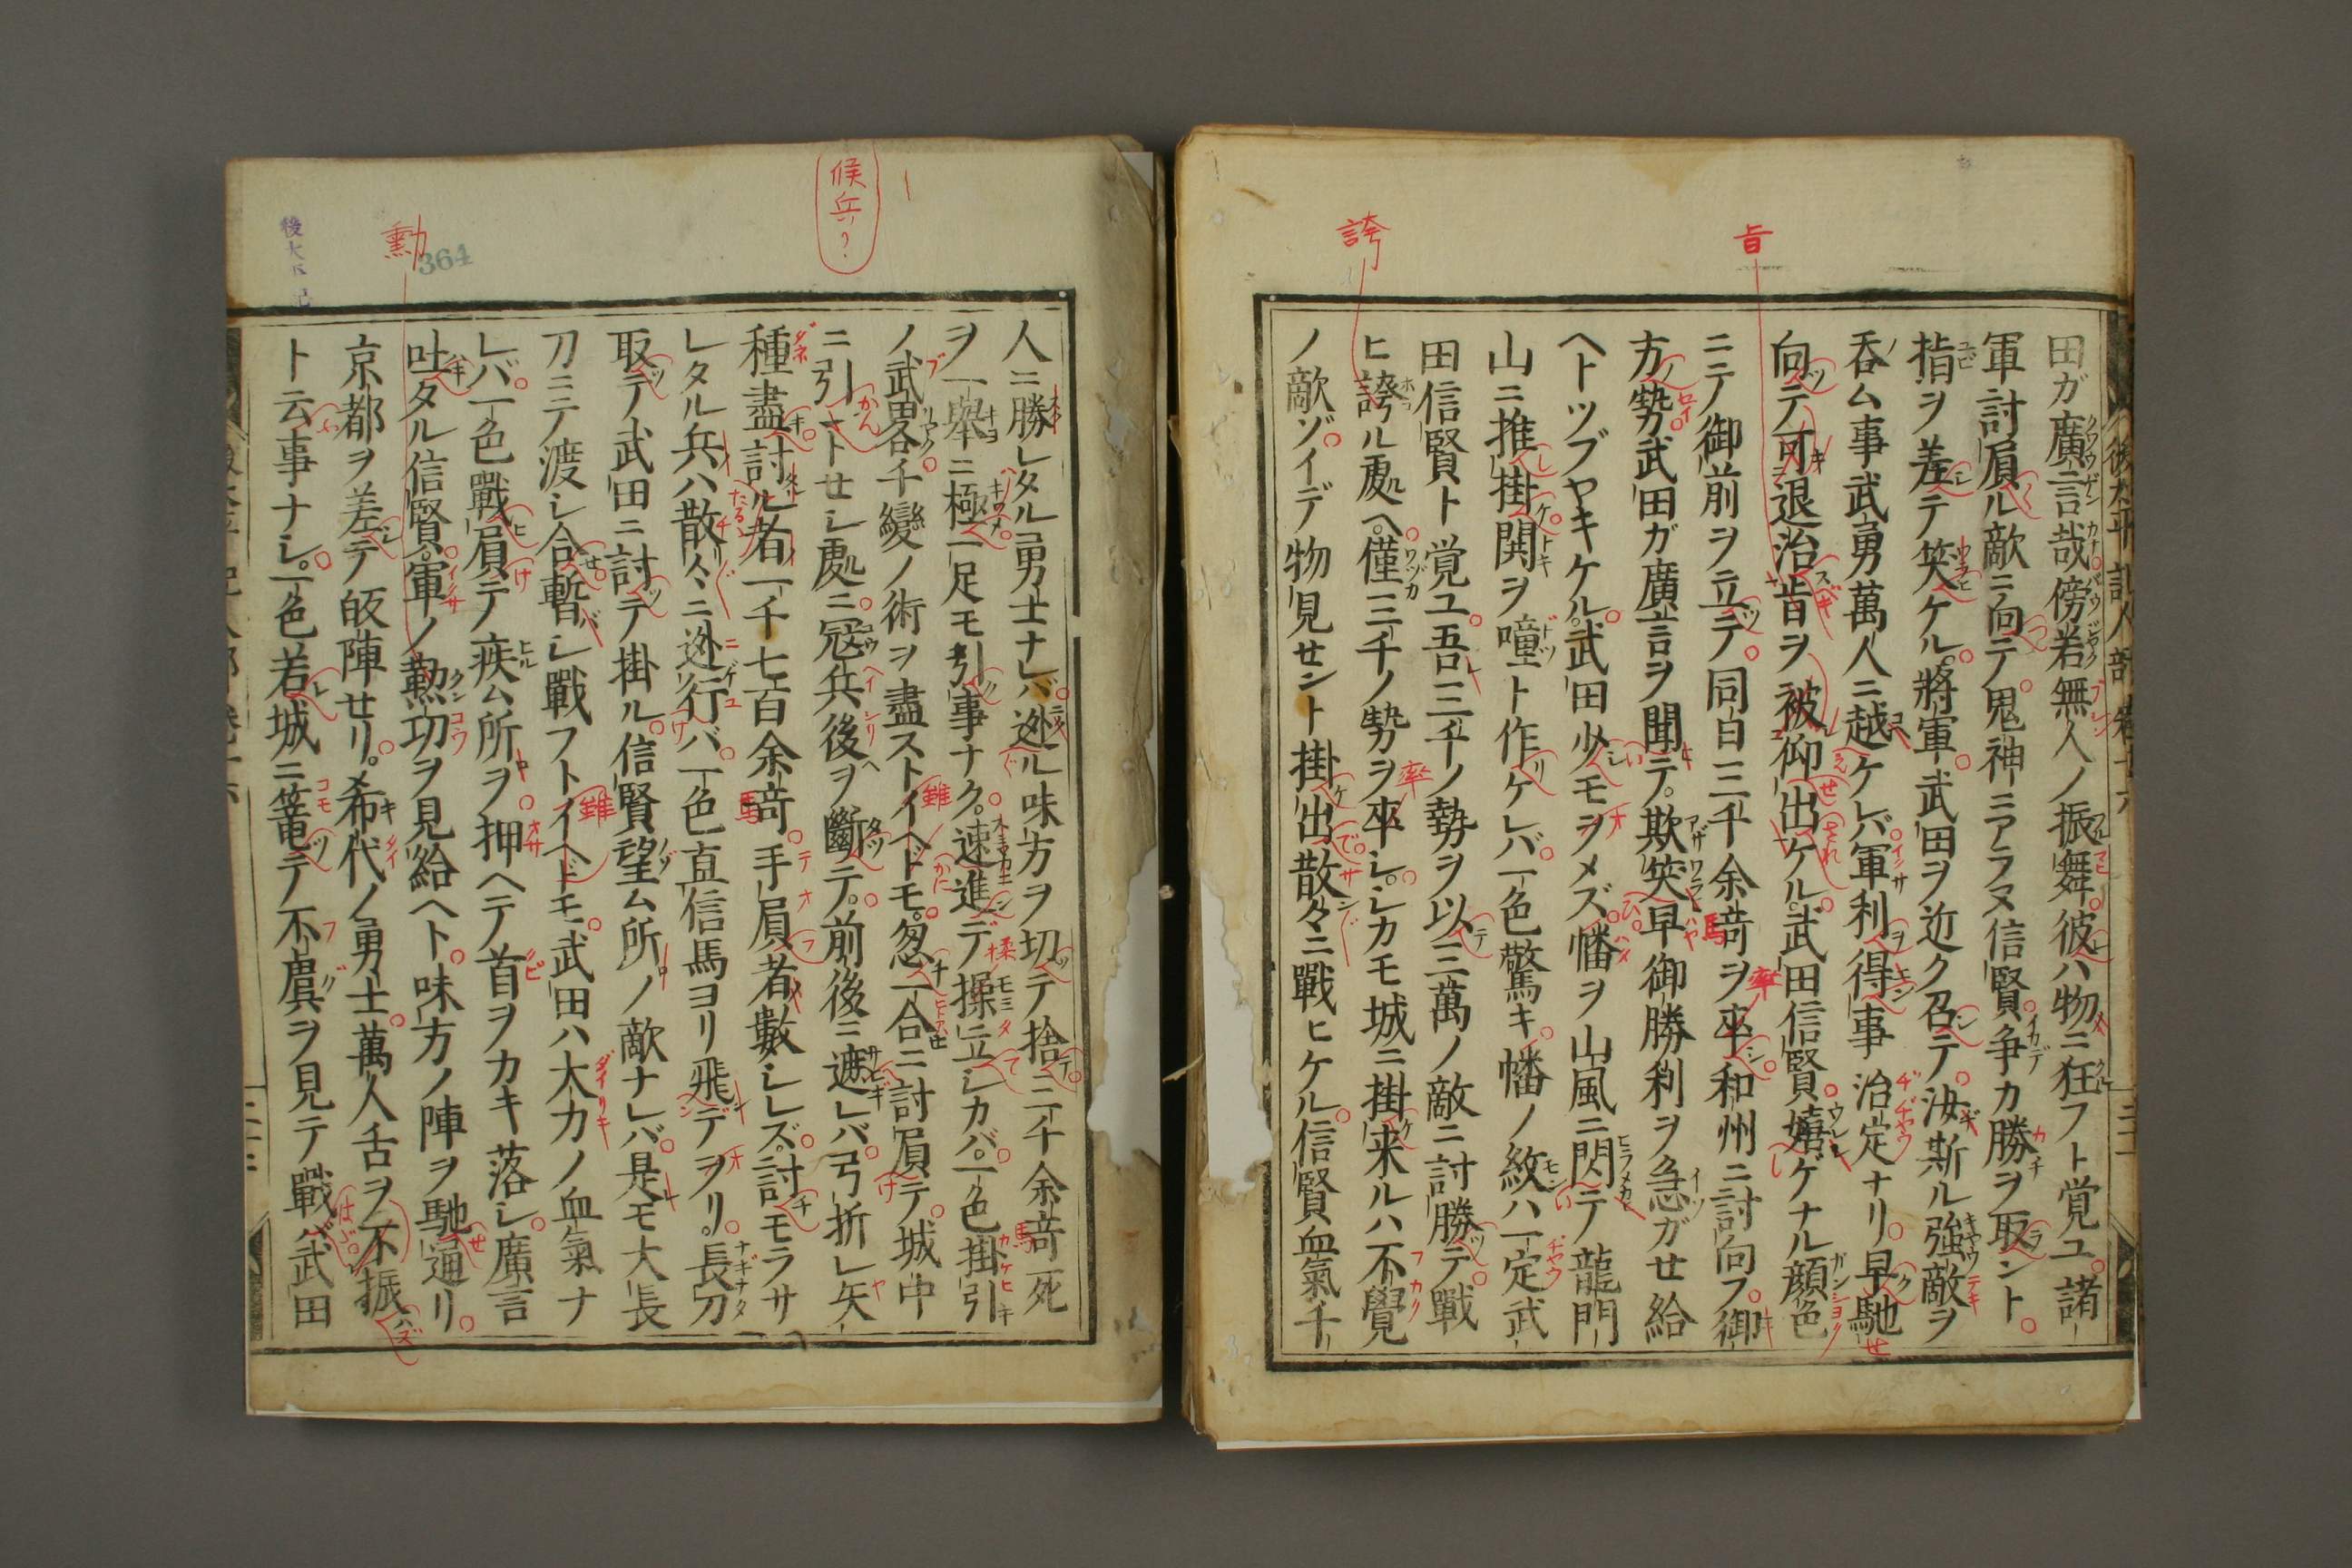 旨
誇
田ガ廣言哉傍若無人ノ振舞彼ハ物ニ狂フト覚ユ諸
軍討屓ル敵ニ向テ鬼神ニアラヌ信賢争カ勝ヲ取ント
指ヲ差テ笑ケル將軍武田ヲ近ク召テ汝斯ル強敵ヲ
呑ム事武勇萬人ニ越ケレバ軍利得事治定ナリ早馳
向テ可退治旨ヲ被仰出ケル武田信賢嬉ゲナル顔色
ニテ御前ヲ立テ同白三千余竒ヲ卒和州ニ討向フ御
方勢武田ガ廣言ヲ聞テ欺笑早御勝利ヲ急ガセ給
ヘトツブヤキケル武田少モヲメズ幡ヲ山風ニ閃テ龍門
山ニ推掛関ヲ噇ト作ケレバ一色驚キ幡ノ紋ハ一定武
田信賢ト覚ユ吾三千ノ勢ヲ以三萬ノ敵ニ討勝テ戰
ヒ誇ル處ヘ僅三千ノ勢ヲ卒シシカモ城ニ掛来ルハ不覺
ノ敵ゾイデ物見セント掛出散々ニ戰ヒケル信賢血氣千
候兵?
勳
364
人ニ勝レタル勇士ナレバ迯ル味方ヲ切テ捨二千余竒死
ヲ一擧ニ極一足モ引事ナク速進デ操立シカバ一色掛引
ノ武畧千變ノ術ヲ盡ストイヘドモ忽一合ニ討屓テ城中
ニ引ナトセシ處ニ冦兵後ヲ斷テ前後ニ遮レバ弓折レ矢
種盡討ル者一千七百余竒手屓者數シレズ討モラサ
レタル兵ハ散々ニ迯行バ一色直信馬ヨリ飛デヲリ長刀
取テ武田ニ討テ掛ル信賢望ム所ノ敵ナレバ是モ大長
刀ニテ渡シ合暫シ戰フトイヘドモ武田ハ大力ノ血氣ナ
レバ一色戰屓テ疾ム所ヲ押ヘテ首ヲカキ落シ廣言
吐タル信賢軍ノ勲功ヲ見給ヘト味方ノ陣ヲ馳通リ
京都ヲ差テ皈陣セリ希代ノ勇士萬人舌ヲ不振
ト云事ナシ一色若城ニ篭テ不虞ヲ見テ戰バ武田